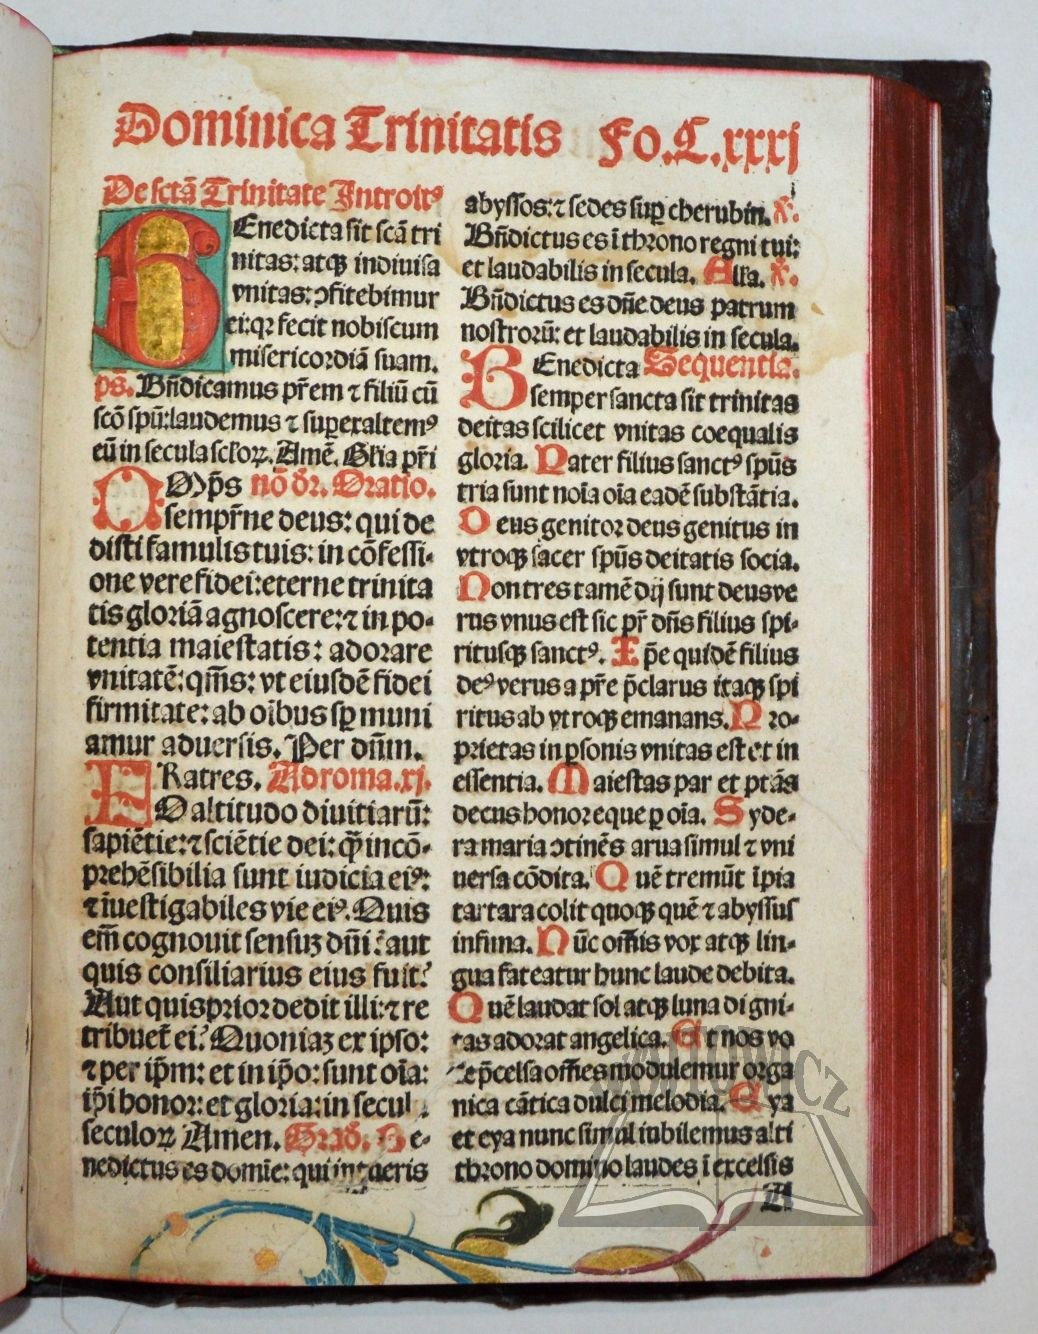 Dominica Trinitatis Fo.C.xxxj
De sctā Trinitate Introitꝰ
BEnedicta sit scā tri
nitas: atqꝫ indiuisa
vnitas: ↄfitebimur
ei: qꝛ fecit nobiscum
misericordiā suam.
ps. Bn̄dicamus pr̄em ⁊ filiū cū
scō spū: laudemus ⁊ suꝑexaltemꝰ
eū in secula scl'oꝝ. Amē. Gl'ia pr̄i
OMp̄s nō dr̄. Oratio.
sempr̄ne deus: qui de
disti famulis tuis: in cōfessi-
one vere fidei: eterne trinita
tis gloriā agnoscere: ⁊ in po-
tentia maiestatis: adorare
vnitatē: qm̄s: vt eiusdē fidei
firmitate: ab oībus sꝑ muni
amur aduersis. Per dn̄m.
FRatres. Ad roma. xj.
O altitudo diuitiarū:
sapiētie: ⁊ sciētie dei: q̄ꝫ incō-
prehēsibilia sunt iudicia eiꝰ:
⁊ īuestigabiles vie eiꝰ. Quis
em̄ cognouit sensuꝫ dn̄i? aut
quis consiliarius eius fuit?
Aut quis prior dedit illi: ⁊ re
tribuet̄ ei? Quoniaꝫ ex ipso:
⁊ per ip̄m: et in ip̄o: sunt oīa:
ip̄i honor: et gloria: in secul
seculoꝝ Amen. Grad̄. Be-
nedictus es domīe: qui intueris
abyssos: ⁊ sedes suꝑ cherubin. ℣.
Bn̄dictus es ī throno regni tui:
et laudabilis in secula. Alla. ℣.
Bn̄dictus es dn̄e deus patrum
nostrorū: et laudabilis in secula.
BEnedicta Sequentia.
semper sancta sit trinitas
deitas scilicet vnitas coequalis
gloria. Pater filius sanctꝰ spūs
tria sunt noīa oīa eadē substātia.
Deus genitor deus genitus in
vtroqꝫ sacer spūs deitatis socia.
Non tres tamē dij sunt deus ve
rus vnus est sic pr̄ dn̄s filius spi-
ritusqꝫ sanctꝰ. Ip̄e quidē filius
deꝰ verus a pr̄e p̄clarus itaqꝫ spi
ritus ab vtroqꝫ emanans. Pro-
prietas in ꝑsonis vnitas est et in
essentia. Maiestas par et ptās
decus honor eque ꝑ oīa. Syde-
ra maria ↄtinēs arua simul ⁊ vni
uersa cōdita. Quē tremūt īpia
tartara colit quoqꝫ quē ⁊ abyssus
infima. Nūc om̄is vox atqꝫ lin-
gua fateatur hunc laude debita.
Quē laudat sol atqꝫ luna digni-
tas adorat angelica. Et nos vo
ce p̄celsa om̄es modulemur orga
nica cātica dulci melodia. Eya
et eya nunc simul iubilemus alti
throno domino laudes ī excelsis
WÓJTOWICZ